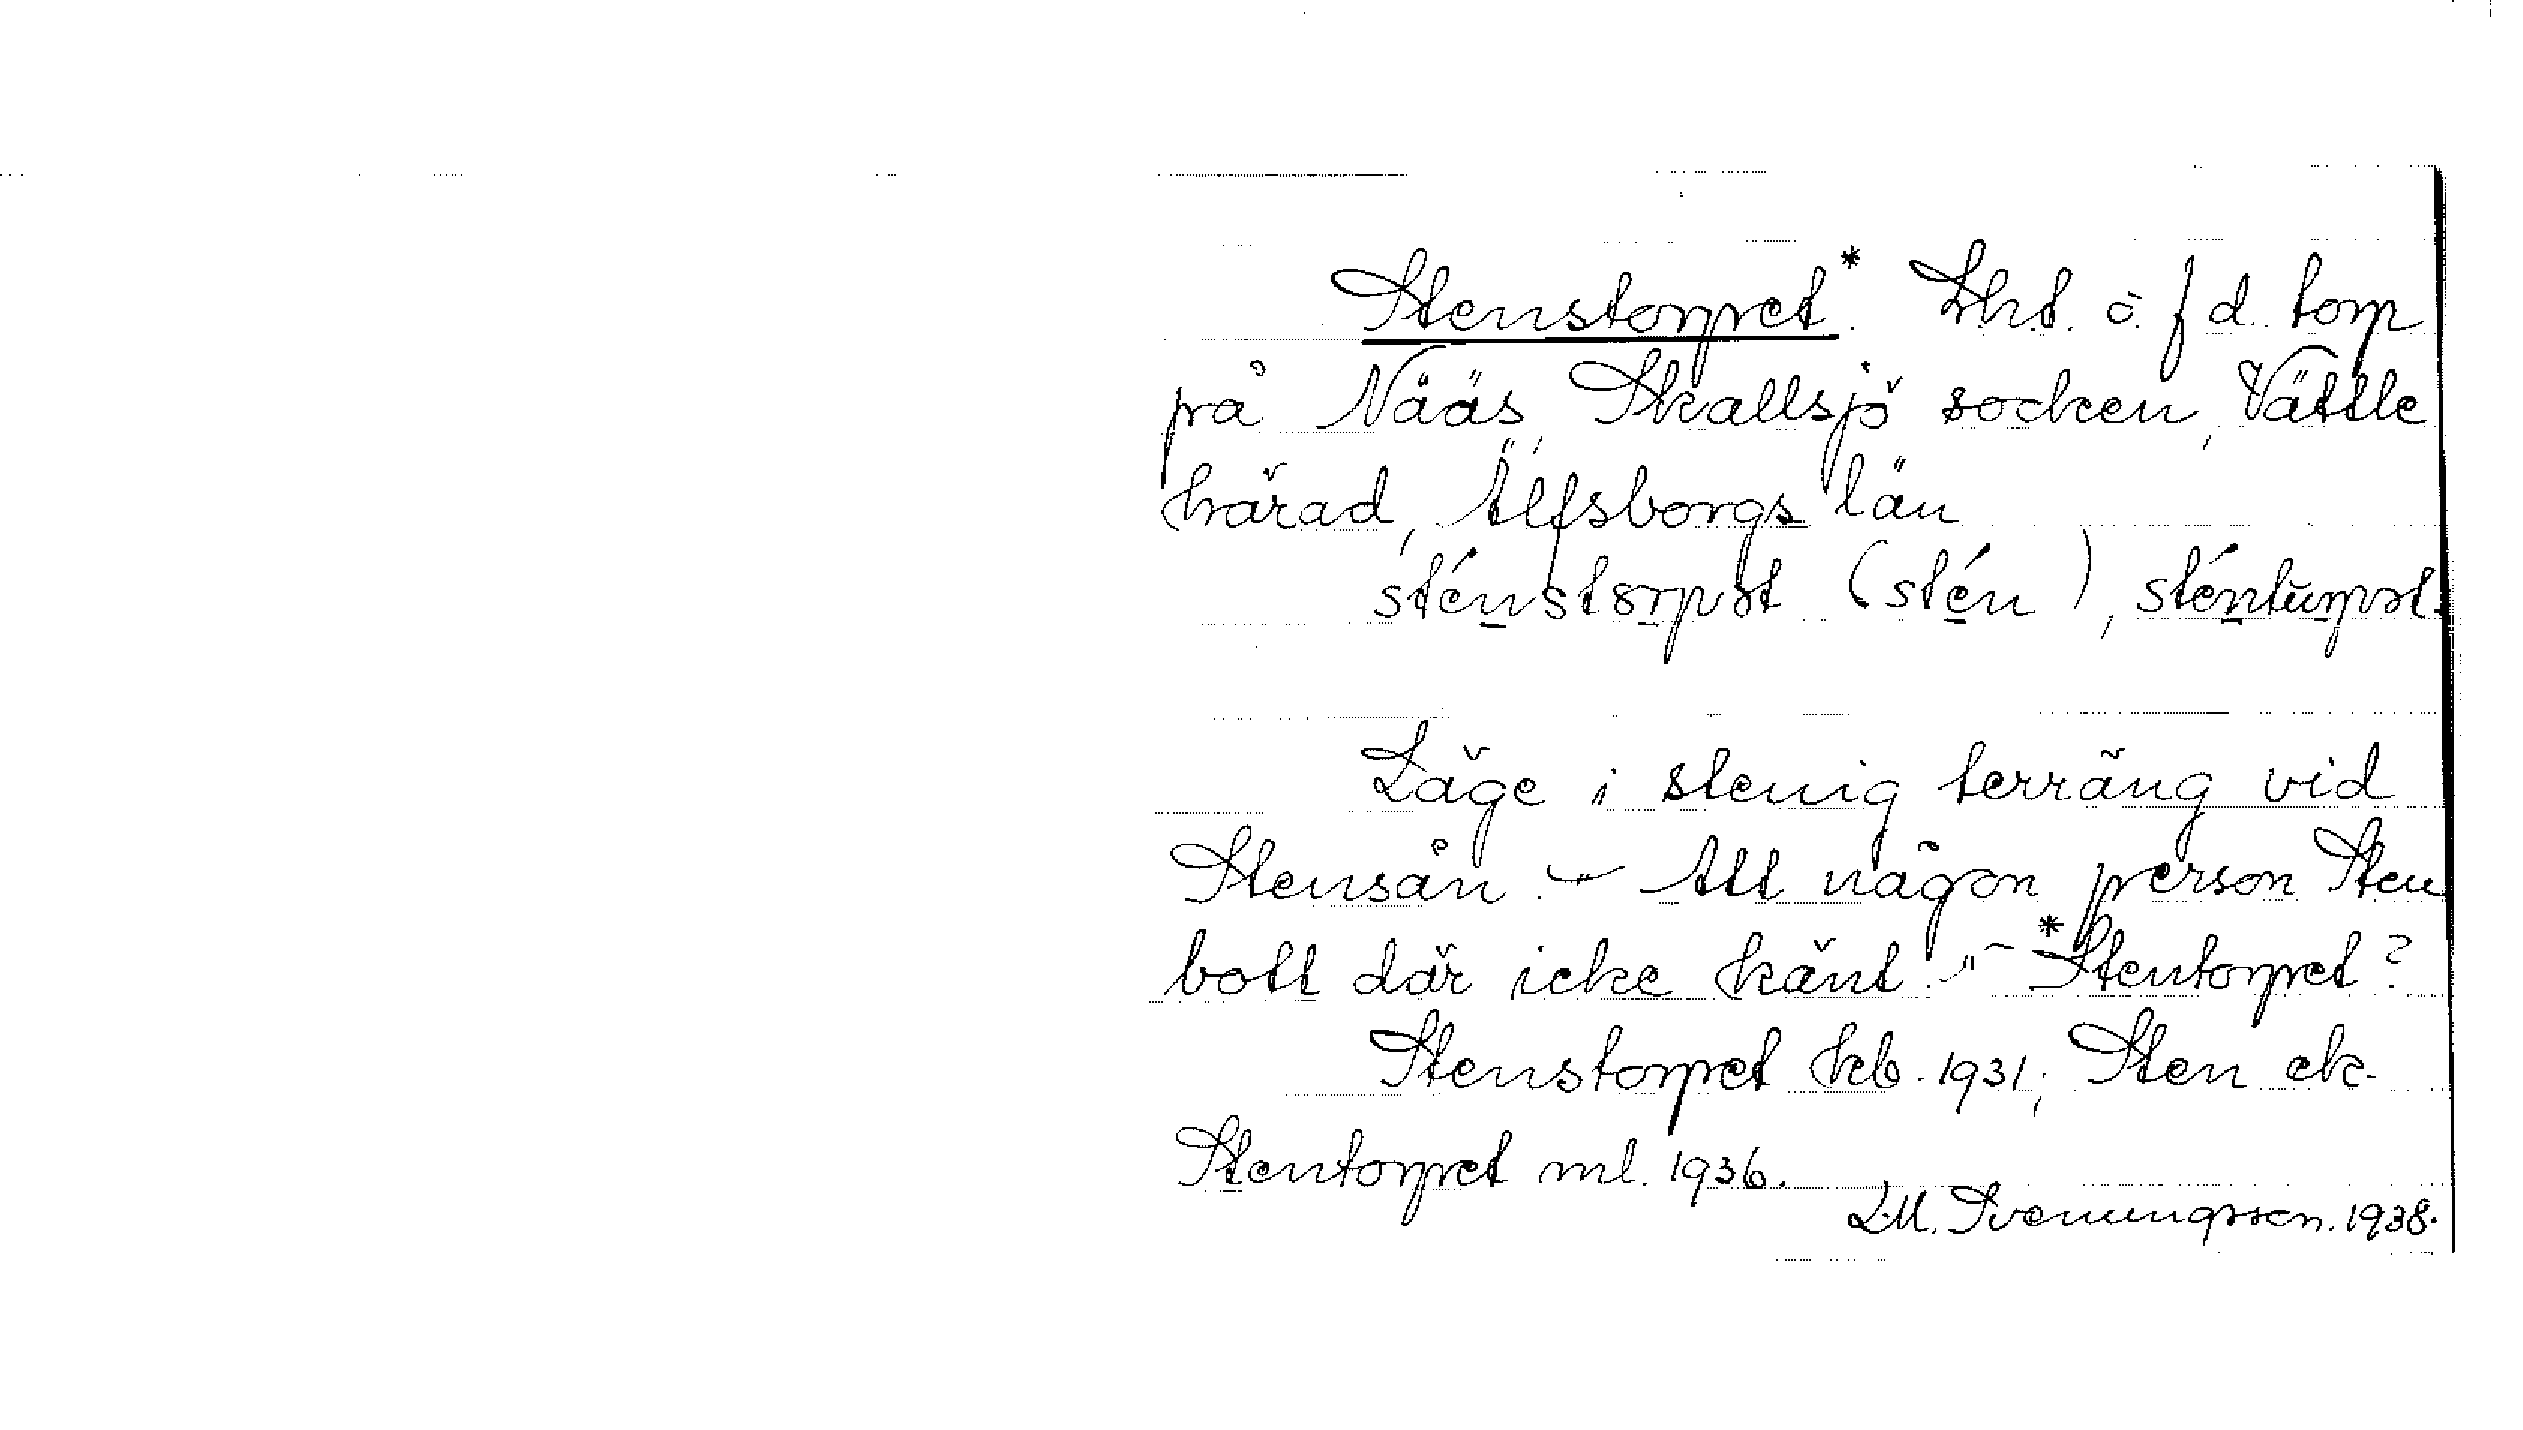 Stenstorpet*. Lht. o. f d. torp
på Nääs, Skallsjö socken, Vättle
härad, Älfsborgs län
sténstorpət (stén ), sténturpət.
Läge i stenig terräng vid
Stensån. - Att någon person Sten
bott där icke känt. - *Stentorpet?
Stenstorpet kb. 1931; Sten ek.
Stentorpet ml. 1936.
L.M. Svenungsson. 1938.